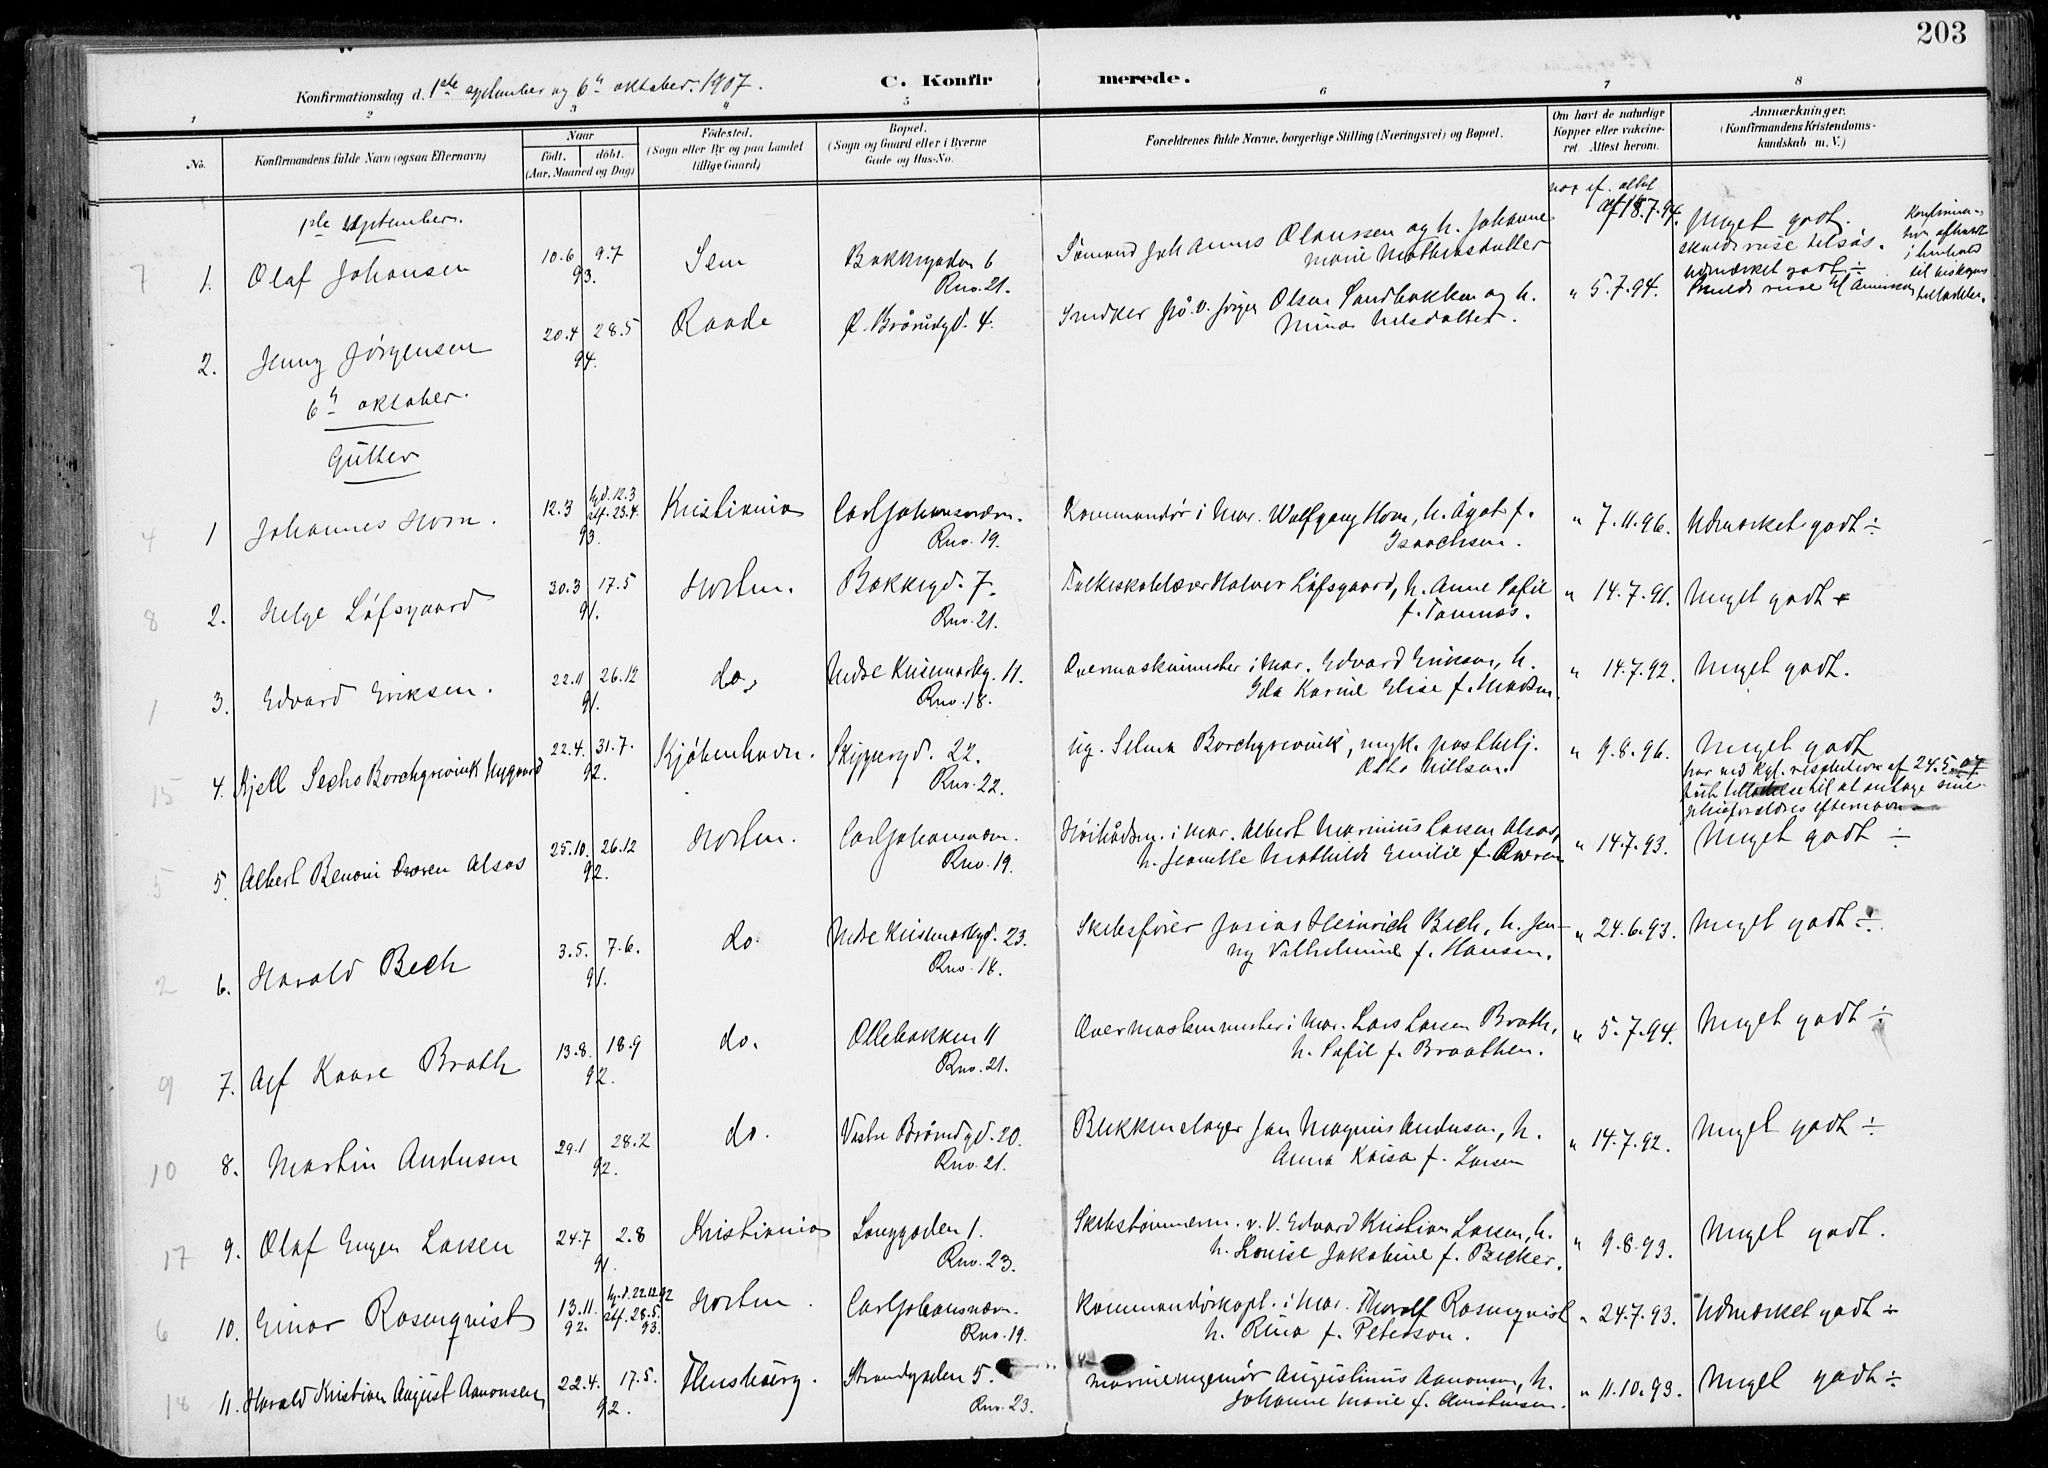 203
Konfirmationsdag d. 1ste september og 6te oktober 1907.
C. Konfirmerede.
1 2 3 4 5 6 7 8
No.
Konfirmandens fulde Navn (ogsaa Efternavn)
Naar
født. døbt.
(Aar, Maaned og Dag)
Fødested.
(Sogn eller By og paa Landet
tillige Gaard)
Bopæl.
(Sogn og Gaard eller i Byerne
Gade og Hus-No.
Forældrenes fulde Navne, borgerlige Stilling (Næringsvei) og Bopæl.
Om havt de naturlige
Kopper eller vakcine-
ret. Attest herom.
Anmærkninger.
(Konfirmandens Kristendoms-
kundskab m. V.)
1ste September.
7 1. Olaf Johansen 10.6 9.7 93. Sem Bakkegaden 6 Rno. 21. Sømand Johannes Olaussen og h. Johanne Marie Mathiasdatter af 18.7.94. Meget godt.
i henhold
2. Jenny Jørgensen 20.4 28.5 94. Raade Ø. Brårudgd. 4. Snedker Jørgen Olsen Sandbakken og h. Mina Nilsdatter. " 5.7.94. Udmærket godt ÷
6te oktober.
Gutter
4 1 Johannes Horn. 12.3 hjd. 12.3 stf. 23.4. 93. Kristiania Carljohansværn. Rno. 19. Kommandør i Mar. Wolfgang Horn, h. Agot f. Isaachsen. " 7.11.96. Udmærket godt ÷
8 2. Helge Løfsgaard 30.3 17.5 91. Horten. Bakkegd. 7. Rno. 21. Folkeskolelærer Halvor Løfsgaard, h. Anne Sofie f. Tamnæs. " 14.7.91. Meget godt
1 3. Edvard Eriksen. 22.11 26.12 91. do. Nedre Keisemarkg. 11. Rno. 18. Overmaskinmester i Mar. Edvard Eriksen, h. Ida Karine Elise f. Madsen. " 14.7.92. Meget godt.
15 4. Kjell Sechs Borchgrevink Nygaard 22.4. 31.7. 92. Kjøbenhavn. Skippergd. 22. Rno. 22. ug. Selma Borchgrevink, Otto Nilsen. " 9.8.96. Meget godt
har ved kgl. resolution af 24.5.07
faat tilladelse til at antage sine
pleieforældres efternavn
5 5. Albert Benoni Alsos 25.10. 26.12 92. Horten. Carljohansværn. Rno. 19. Høibådsm. i Mar. Albert Marinius Larsen Alsos, h. Jeanette Mathilde Emilie f. " 14.7.93. Meget godt ÷
2 6. Harald Bech 3.5. 7.6. 91. do. Nedre Keisemarkgd. 23. Rno. 18. Skibsfører Josias Heinrich Bech, h. Jenny Vilhelmine f. Hansen. " 24.6.93. Meget godt ÷
9 7. Alf Kaare Brath 13.8. 18.9 92. do. Ollebakken 11 Rno. 21. Overmaskinmester i Mar. Lars Larsen Brath, h. Sofie f. Braathen. " 5.7.94. Meget godt ÷
10 8. Martin Andersen 29.1 28.2 92. do. Vestre Brårudgd. 20. Rno. 21. Blikkenslager Jan Magnus Andersen, h. Anna Kaisa f. Larsen " 14.7.92. Meget godt ÷
17 9. Olaf Eugen Larsen 24.7 2.8 91. Kristiania Langgaden 1. Rno. 23. Skibstømmerm. v. V. Edvard Kristian Larsen, h. h. Louise Jakobine f. Becker. " 9.8.93. Meget godt.
6 10. Einar Rosenqvist 13.11. 92. hjd. 22.12.92 stf. 28.5. 93. Horten. Carljohansværn. Rno. 19. Kommandørkapt. i Mar. Thoralf Rosenqvist h. Rina f. Peterson. " 24.7.93. Udmærket godt ÷
18 11. Harald Kristian August Aanonsen 22.4. 17.5. 92. Flensborg. Strandgaden 5. Rno. 23. Marineingeniør Augustinus Aanonsen, h. Johanne Marie f. Christensen. " 11.10.93. Meget godt ÷